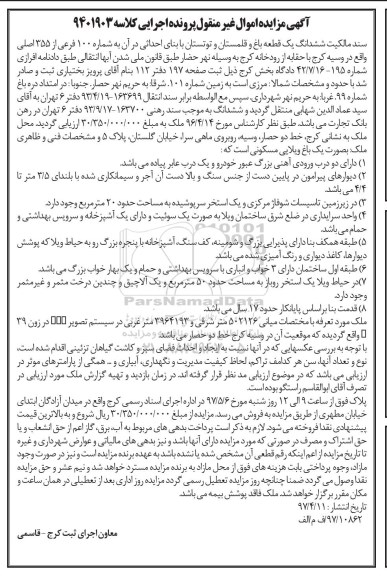 آگهی مزایده اموال غیر منقول پرونده اجرایی کلاسه ۹۴۰۱۹۰۳
سند مالکیت ششدانگ یک قطعه باغ و قلمستان و توتستان با بنای احداثی در آن به شماره ۱۰۰ فرعی از ۳۵۵ اصلی
واقع در وسیه کرج با حقابه از رودخانه کرج به وسیله نهر حضار طبق قانون ملی شدن آبها انتقالی طبق دادنامه افرازی
شماره ۱۹۵-۴۲/۷/۱۶ دادگاه بخش کرج ذیل ثبت صفحه ۱۹۷ دفتر ۱۱۲ بنام آقای پرویز بختیاری ثبت و صادر
شد با حدود و مشخصات شمالا: مرزی است به زمین شماره ۱۰۱، شرقا: به حریم نهر حضار، جنوبا: در امتداد دره باغ
شماره ۹۹، غربا: به حریم نهر شهرداری، سپس مع الواسطه برابر سند انتقال ۱۶۳۶۹۹-۹۳/۴/۱۹ دفتر ۶ تهران به آقای
سید عماد الدین شهابی منتقل گردید و ششدانگ به موجب سند رهنی ۱۶۳۷۰۰-۹۳/۹/۱۷ دفتر ۶ تهران در رهن
بانک تجارت می باشد. طبق نظر کارشناس مورخ ۹۶/۴/۱۴ ملک به مبلغ ۳۰/۳۵۰/۰۰۰/۰۰۰ ارزیابی گردید، محل
ملک به نشانی کرج، خط دو حصار، وسیه، روبروی ماهی سرا، خیابان گلستان، پلاک ۵ و مشخصات فنی و ظاهری
ملک: بصورت یک باغ ویلایی مسکونی است که:
۱) دارای دو درب ورودی آهنی بزرگ عبور خودرو و یک درب عابر پیاده می باشد.
۲) دیوارهای پیرامون در پایین دست از جنس سنگ و بالا دست آن آجر و سیمانکاری شده با بلندای ۳/۵ متر تا
۴/۴ می باشد.
۳) در زیرزمین تاسیسات شوفاژ مرکزی و یک استخر سرپوشیده به مساحت حدود ۲۰ مترمربع وجود دارد.
۴) واحد سرایداری در ضلع شرق ساختمان ویلا به صورت یک سوئیت و دارای یک آشپزخانه و سرویس بهداشتی و
حمام می باشد.
۵) طبقه همکف بنا دارای پذیرایی بزرگ و شومینه، کف سنگ، آشپزخانه با پنجره بزرگ رو به حیاط ویلا که پوشش
دیوارها، کاغذ دیواری و رنگ آمیزی شده می باشد.
۶) طبقه اول ساختمان دارای ۳ خواب و انباری با سرویس بهداشتی و حمام و یک بهار خواب بزرگ می باشد.
۷) در حیاط ویلا یک استخر روباز به مساحت حدود ۵۰ مترمربع و یک آلاچیق و چندین درخت مثمر و غیرمثمر
وجود دارد.
۸) قدمت بنا بر اساس پایانکار حدود ۱۷ سال می باشد.
ملک مورد تعرفه با مختصات میانی ۵۰۲۱۲۶ متر شرقی و ۳۹۶۴۱۹۳ متر غربی در سیستم تصویر در زون ۳۹
واقع گردیده که موقعیت آن در وسیه کرج خط دو حصار می باشد
با توجه به بررسی عکسهایی که در آنها نسبت به ایجاد و احداث فضای سبز و کاشت گیاهان تزئینی اقدام شده است،
نوع و تعداد آنها، سن هر کدام، تراکم، لحاظ کیفیت مدیریت و نگهداری، آبیاری و.. همگی از پارامترهای موثر در
ارزیابی می باشد که در موضوع ارزیابی مد نظر قرار گرفته اند. در زمان بازدید و تهیه گزارش ملک مورد ارزیابی در
تصرف آقای ابوالقاسم راستگو بوده است.
پلاک فوق از ساعت ۹ الی ۱۲ روز شنبه مورخ ۹۷/۵/۶ در اداره اجرای اسناد رسمی کرج واقع در میدان آزادگان ابتدای
خیابان مطهری از طریق مزایده به فروش می رسد. مزایده از مبلغ ۳۰/۳۵۰/۰۰۰/۰۰۰ ریال شروع و به بالاترین قیمت
پیشنهادی نقدا فروخته می شود. لازم به ذکر است پرداخت بدهی های مربوط به آب، برق، گاز اعم از حق انشعاب و یا
حق اشتراک و مصرف در صورتی که مورد مزایده دارای آنها باشد و نیز بدهی های مالیاتی و عوارض شهرداری و غیره
تا تاریخ مزایده اعم از اینکه رقم قطعی آن مشخص شده یا نشده باشد به عهده برنده مزایده است و نیز در صورت وجود
مازاد، وجوه پرداختی بابت هزینه های فوق از محل مازاد به برنده مزایده مسترد خواهد شد و نیم عشر و حق مزایده
نقدا وصول می گردد ضمنا چنانچه روز مزایده تعطیل رسمی گردد مزایده روز اداری بعد از تعطیلی در همان ساعت و
مکان مقرر برگزار خواهد شد. ملک فاقد پوشش بیمه می باشد.
تاریخ انتشار: ۹۷/۴/۱۱
۹۷/۱۰۸۶۲/ف م الف
معاون اجرای ثبت کرج - قاسمی